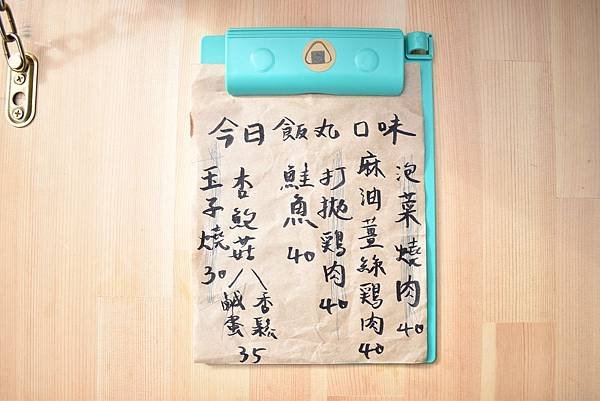 今日飯丸口味
泡菜燒肉40
麻油薑絲鷄肉40
打拋鷄肉40
鮭魚40
杏鮑菇
香鬆
鹹蛋
35
玉子燒30